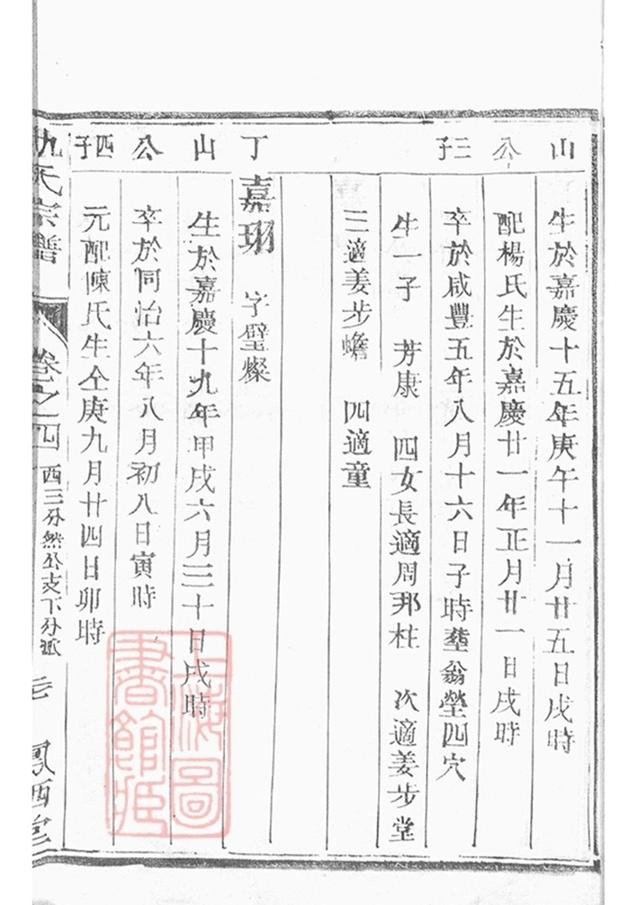 山 生於嘉慶十五年庚午十一月廿五日戌時
公 配楊氏生於嘉慶廿一年正月廿一日戌時
三子 卒於咸豐五年八月十六日子時塟翁塋四穴
生一子 芳康 四女長適周邦柱 次適姜步堂
三適姜步蟾 四適童
丁 嘉珝 字璧燦
山 生於嘉慶十九年甲戌六月三十日戌時
公 卒於同治六年八月初八日寅時
四子 元配陳氏生仝庚九月廿四日卯時
氏宗譜 卷之四 西三分然公支下分派
上海圖書館藏